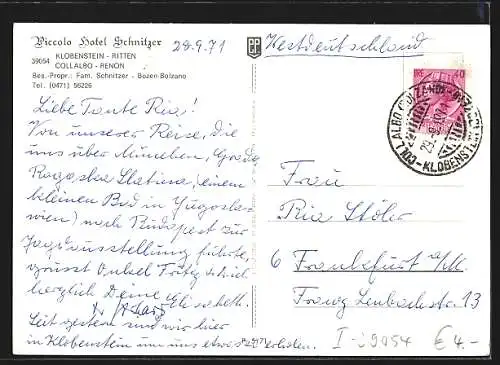 Piccolo Hotel Schnitzer
39054 KLOBENSTEIN - RITTEN
COLLALBO - RENON
Bes.-Propr.: Fam. Schnitzer - Bozen-Bolzano
Tel. (0471) 56226
28.9.71
Westdeutschland
40
COLLALBO (BOLZANO) - KLOBENSTEIN
Liebe Tante Ria!
Von unserer Reise, die
uns über München, Graz,
Rogaska Slatina (einem
kleinen Bad in Yugosla-
wien) nach Budapest zur
Jagdausstellung führte,
grüsst Onkel Fritz & dich
herzlichst Deine Elisabeth.
Seit gestern sind wir hier
in Klobenstein um uns etwas zu erholen.
Frau
Ria Stöler
6 Frankfurt a/M.
Franz Lenbachstr. 13
I-i9054 €4-